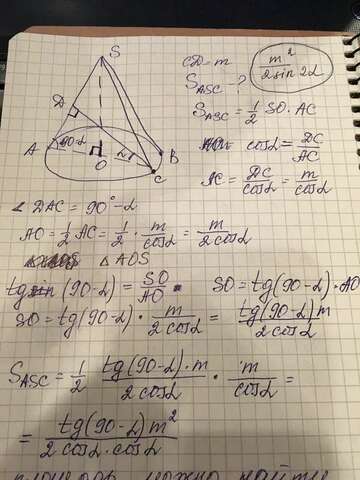 S
D
A
90-α
O
α
B
C
CD = m
m²/2sin2α
S_ASC - ?
S_ASC = 1/2 SO · AC
cosα = DC/AC
AC = DC/cosα = m/cosα
∠ DAC = 90° - α
AO = 1/2 AC = 1/2 · m/cosα = m/2cosα
△ AOS
tg(90-α) = SO/AO
SO = tg(90-α) · AO
SO = tg(90-α) · m/2cosα = tg(90-α)m/2cosα
S_ASC = 1/2 tg(90-α)·m/2cosα · m/cosα =
= tg(90-α)m²/2cosα·cosα